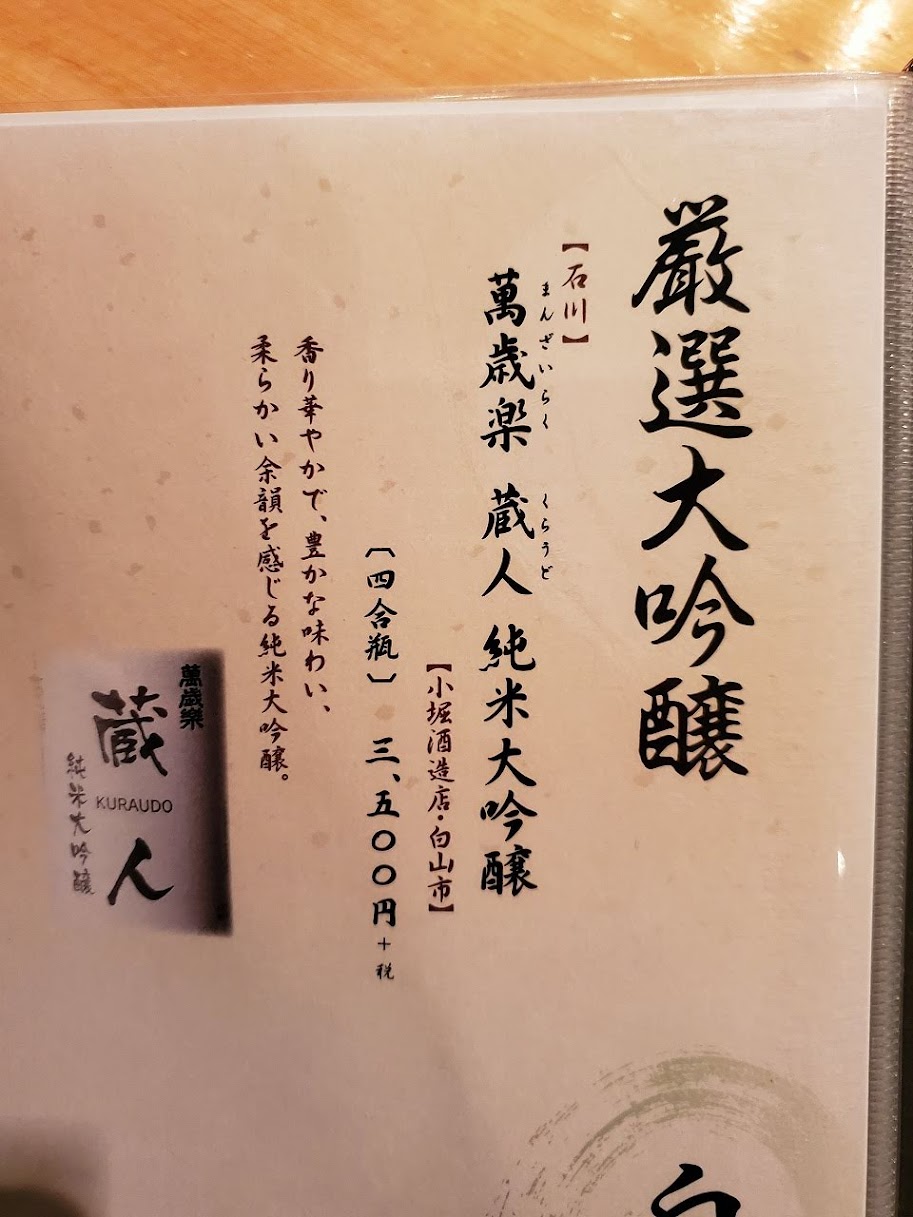 厳選大吟醸
【石川】
まんざいらく くらうど
萬歳楽 蔵人 純米大吟醸
【小堀酒造店・白山市】
〔四合瓶〕 三、五〇〇円+税
香り華やかで、豊かな味わい、
柔らかい余韻を感じる純米大吟醸。
萬歳樂
蔵人
KURAUDO
純米大吟醸